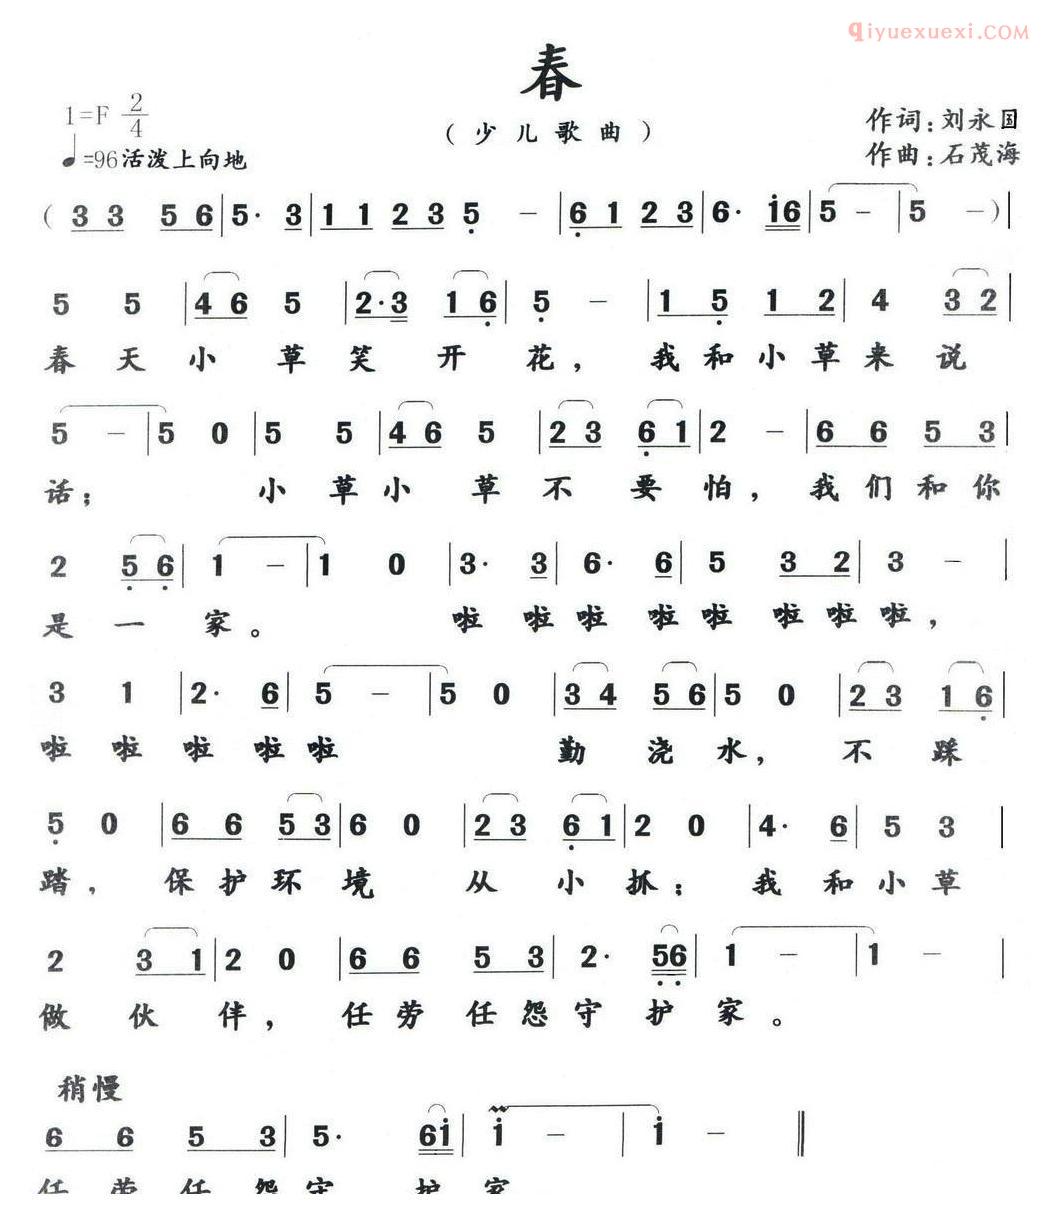 qiyuexuexi.COM
春
1=F 2/4
（少儿歌曲）
作词：刘永国
♩=96活泼上向地
作曲：石茂海
（3 3 5 6|5· 3|1 1 2 3 5 －|6 1 2 3|6· i6|5 －|5 －）|
5 5 |4 6 5 |2·3 1 6|5 － |1 5 1 2|4 3 2|
春 天 小 草 笑 开 花， 我 和 小 草 来 说
5 －|5 0 |5 5 |4 6 5 |2 3 6 1|2 － |6 6 5 3|
话； 小 草 小 草 不 要 怕， 我 们 和 你
2 5 6|1 －|1 0 |3· 3|6· 6|5 3 2|3 － |
是 一 家。 啦 啦 啦 啦 啦 啦 啦 啦，
3 1 |2· 6|5 －|5 0 |3 4 5 6|5 0 |2 3 1 6|
啦 啦 啦 啦 啦 勤 浇 水， 不 踩
5 0 |6 6 5 3|6 0 |2 3 6 1|2 0 |4· 6|5 3 |
踏， 保 护 环 境 从 小 抓； 我 和 小 草
2 3 1|2 0 |6 6 5 3|2· 56|1 － |1 － |
做 伙 伴， 任 劳 任 怨 守 护 家。
稍慢
6 6 5 3|5· 6i|i － |i － ‖
任 劳 任 怨 守 护 家